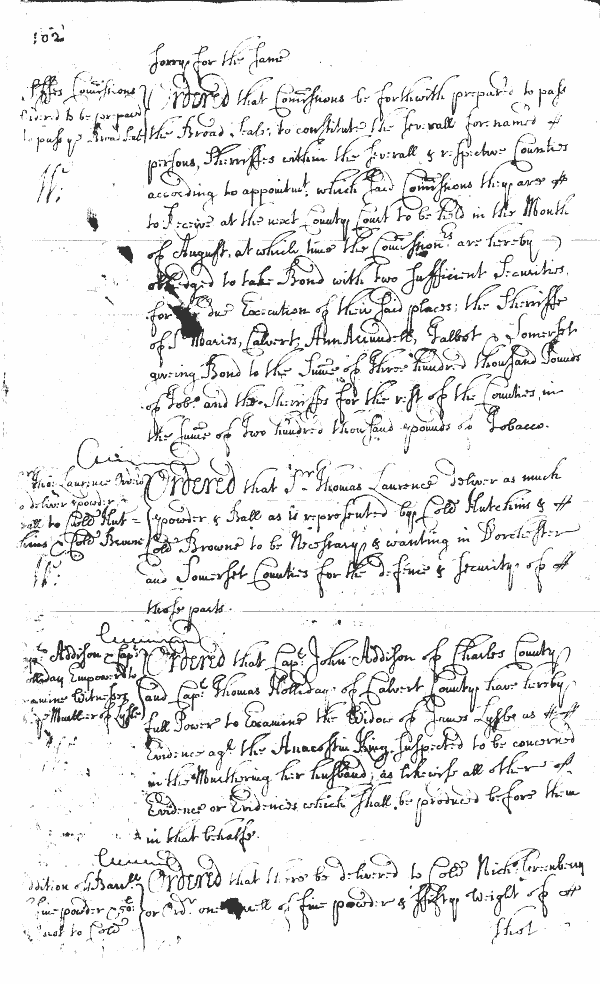 102
sorry for the same
Ordered that Com̃sions be forthwith prepar'd to pass
the Broad Seale, to constitute the severall forenamed
persons, Sherriffes within the severall & respective Counties
according to appointm.t, which said Com̃sions they are
to Receive at the next County Court to be held in the Month
of August, at which time the Com̃sion.rs are hereby
obledged to take Bond with two sufficient Securities
for due Execution of their said places; the Sherriffs
of S.t Maries, Calvert, AnnArundell, Talbot & Somerset
giveing Bond to the Sum̃e of three hundred thousand Pounds
of Tob.o and the Sherriffs for the rest of the Counties, in
the sum̃e of two hundred thousand pounds of Tobacco.
Ordered that S.r Thomas Laurence deliver as much
powder & Ball as is represented by Coll.o Hutchins &
Coll.o Browne to be Necessary & wanting in Dorchester
and Somerset Counties for the defence & security of
those parts.
Ordered that Cap.t John Addison of Charles County
and Cap.t Thomas Holliday of Calvert County have hereby
full Power to Examine the Widow of James Lysle as
Evidence ag.t the Anacostin King suspected to be concerned
in the Murthering her husband; as likewise all other
Evidence or Evidences which shall be produced before them
in that behalfe.
Ordered that there be delivered to Coll.o Nich.o Greenberry
or Ord.r one of fine powder & fifty weight of
shot
Com̃sions
to pass y.e Broad Seal
Tho: Laurence
to deliver powder &
Ball to Coll.o Hut=
chins & Coll.o Browne
Addison & Cap.t
Holliday Empower'd to
Examine Witnesses
Murther of Lysle
addition of Barr.ll
fine powder & 50.l
shot to Coll.o